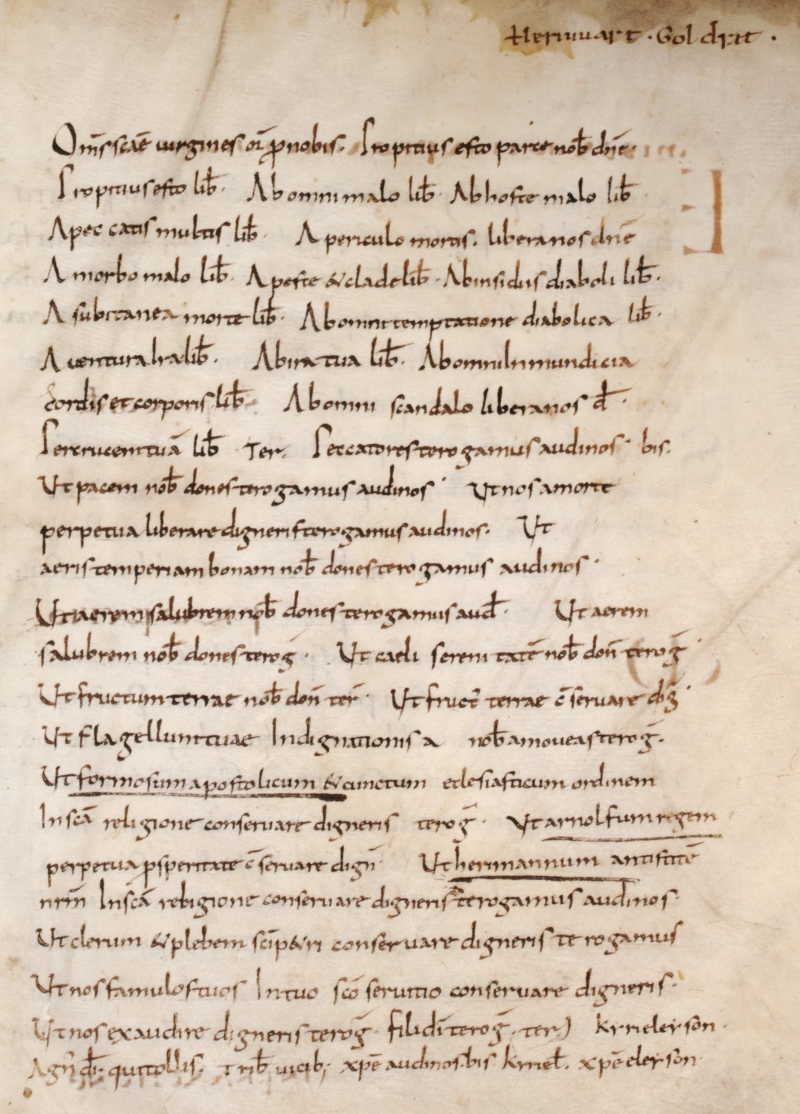 Heruuart · Goldrat ·
Oms scae uirgines or p nobis. Propitius esto parce nob dne.
Propitius esto lib. Ab omni malo lib. Ab hoste malo lib
A peccatis multis lib. A periculo mortis. libera nos dne
A morbo malo lib. A peste & clade lib. Ab insidiis diaboli lib.
A subitanea morte lib. Ab omni temptatione diabolica lib.
A uentura Ira lib. Ab ira tua lib. Ab omni Inmundicia
cordis et corporis lib. Ab omni scandalo libera nos d.
Per crucem tua lib Ter. Peccatores te rogamus audi nos. bis.
Ut pacem nob dones te rogamus audi nos. Ut nos a morte
perpetua liberare digneris te rogamus audi nos. Ut
aeris temperiam bonam nob dones te rogamus audi nos.
Ut aerem salubrem nob dones te rogamus aud. Ut aerem
salubrem nob dones te rog. Ut caeli serenitate nob don te rog
Ut fructum terrae nob don ter. Ut fruct terrae cseruare dig
Ut flagellum tuae Indignationis a nob amoueas te rog.
Ut formosum apostolicum & cunctum eclesiasticum ordinem
In sca religione conseruare digneris te rog. Ut arnolfum regem
perpetua psperitate cseruare dign Ut hermannum antistite
nrm In sca religione conseruare digneris te rogamus audi nos.
Ut clerum & plebem sci p&ri conseruare digneris te rogamus
Ut nos famulos tuos In tuo sco seruitio conseruare digneris.
Ut nos exaudire digneris te rog. fili di te rog. ter) kyrieleyson.
Agn di. qui tollis. Trib uicib; xpe audi nos. bis kyriel. xpe eleyson